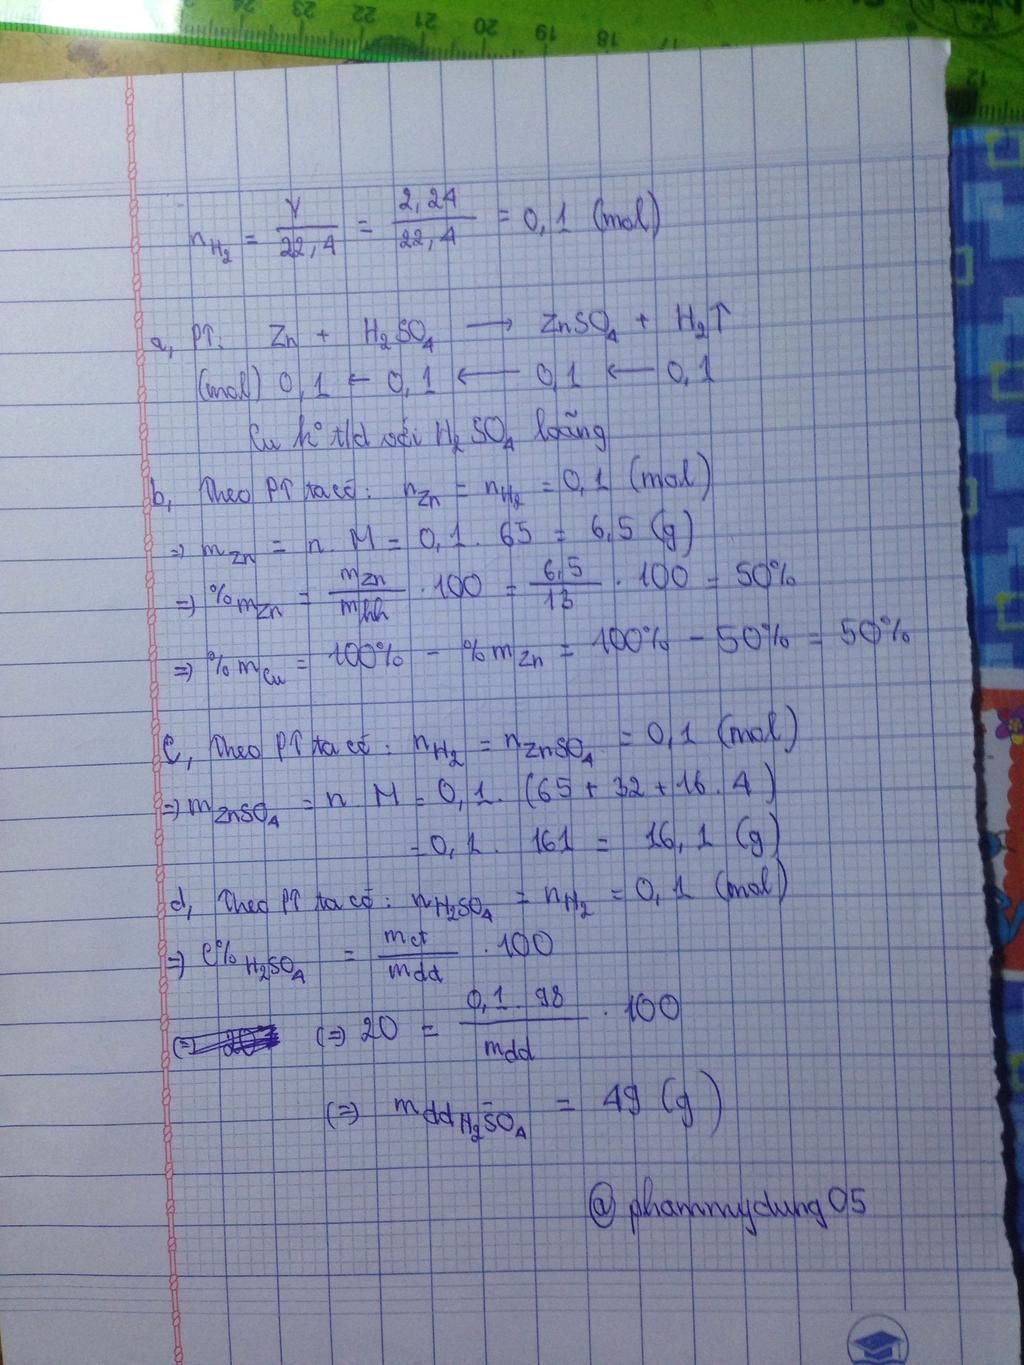 24 23 22 21 20 19 18 17
12
n_H₂ = V/22,4 = 2,24/22,4 = 0,1 (mol)
a, PT: Zn + H₂SO₄ → ZnSO₄ + H₂↑
(mol) 0,1 ← 0,1 ← 0,1 ← 0,1
Cu k° t/d với H₂SO₄ loãng
b, Theo PT ta có: n_Zn = n_H₂ = 0,1 (mol)
=> m_Zn = n. M = 0,1. 65 = 6,5 (g)
=> %m_Zn = m_Zn/m_hh . 100 = 6,5/13 . 100 = 50%
=> %m_Cu = 100% - %m_Zn = 100% - 50% = 50%
c, Theo PT ta có: n_H₂ = n_ZnSO₄ = 0,1 (mol)
=> m_ZnSO₄ = n. M = 0,1. (65 + 32 + 16. 4)
= 0,1. 161 = 16,1 (g)
d, Theo PT ta có: n_H₂SO₄ = n_H₂ = 0,1 (mol)
=> C%_H₂SO₄ = m_ct/m_dd . 100
(=> 20 = 0,1. 98/m_dd . 100
(=> m_dd H₂SO₄ = 49 (g)
@phammydung05